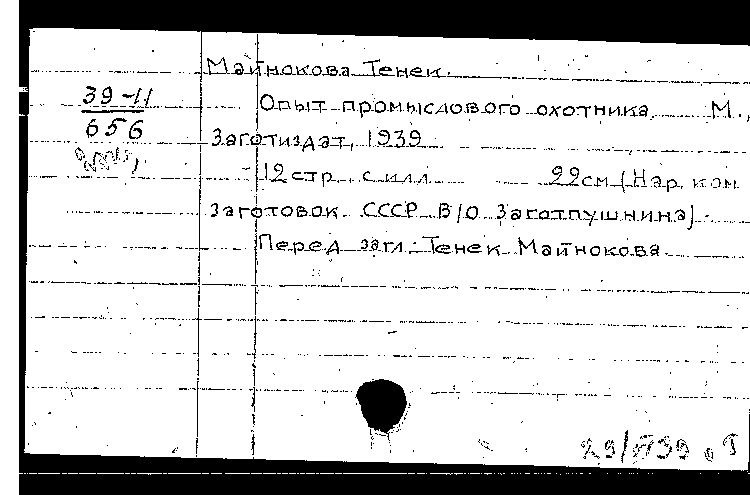 Майнокова Тенек.
39-11
656
Опыт промыслового охотника М.,
Заготиздат, 1939
12 стр. с илл. 22см (Нар. ком
Заготовок СССР В/О Заготпушнина).
Перед загл.: Тенек Майнокова